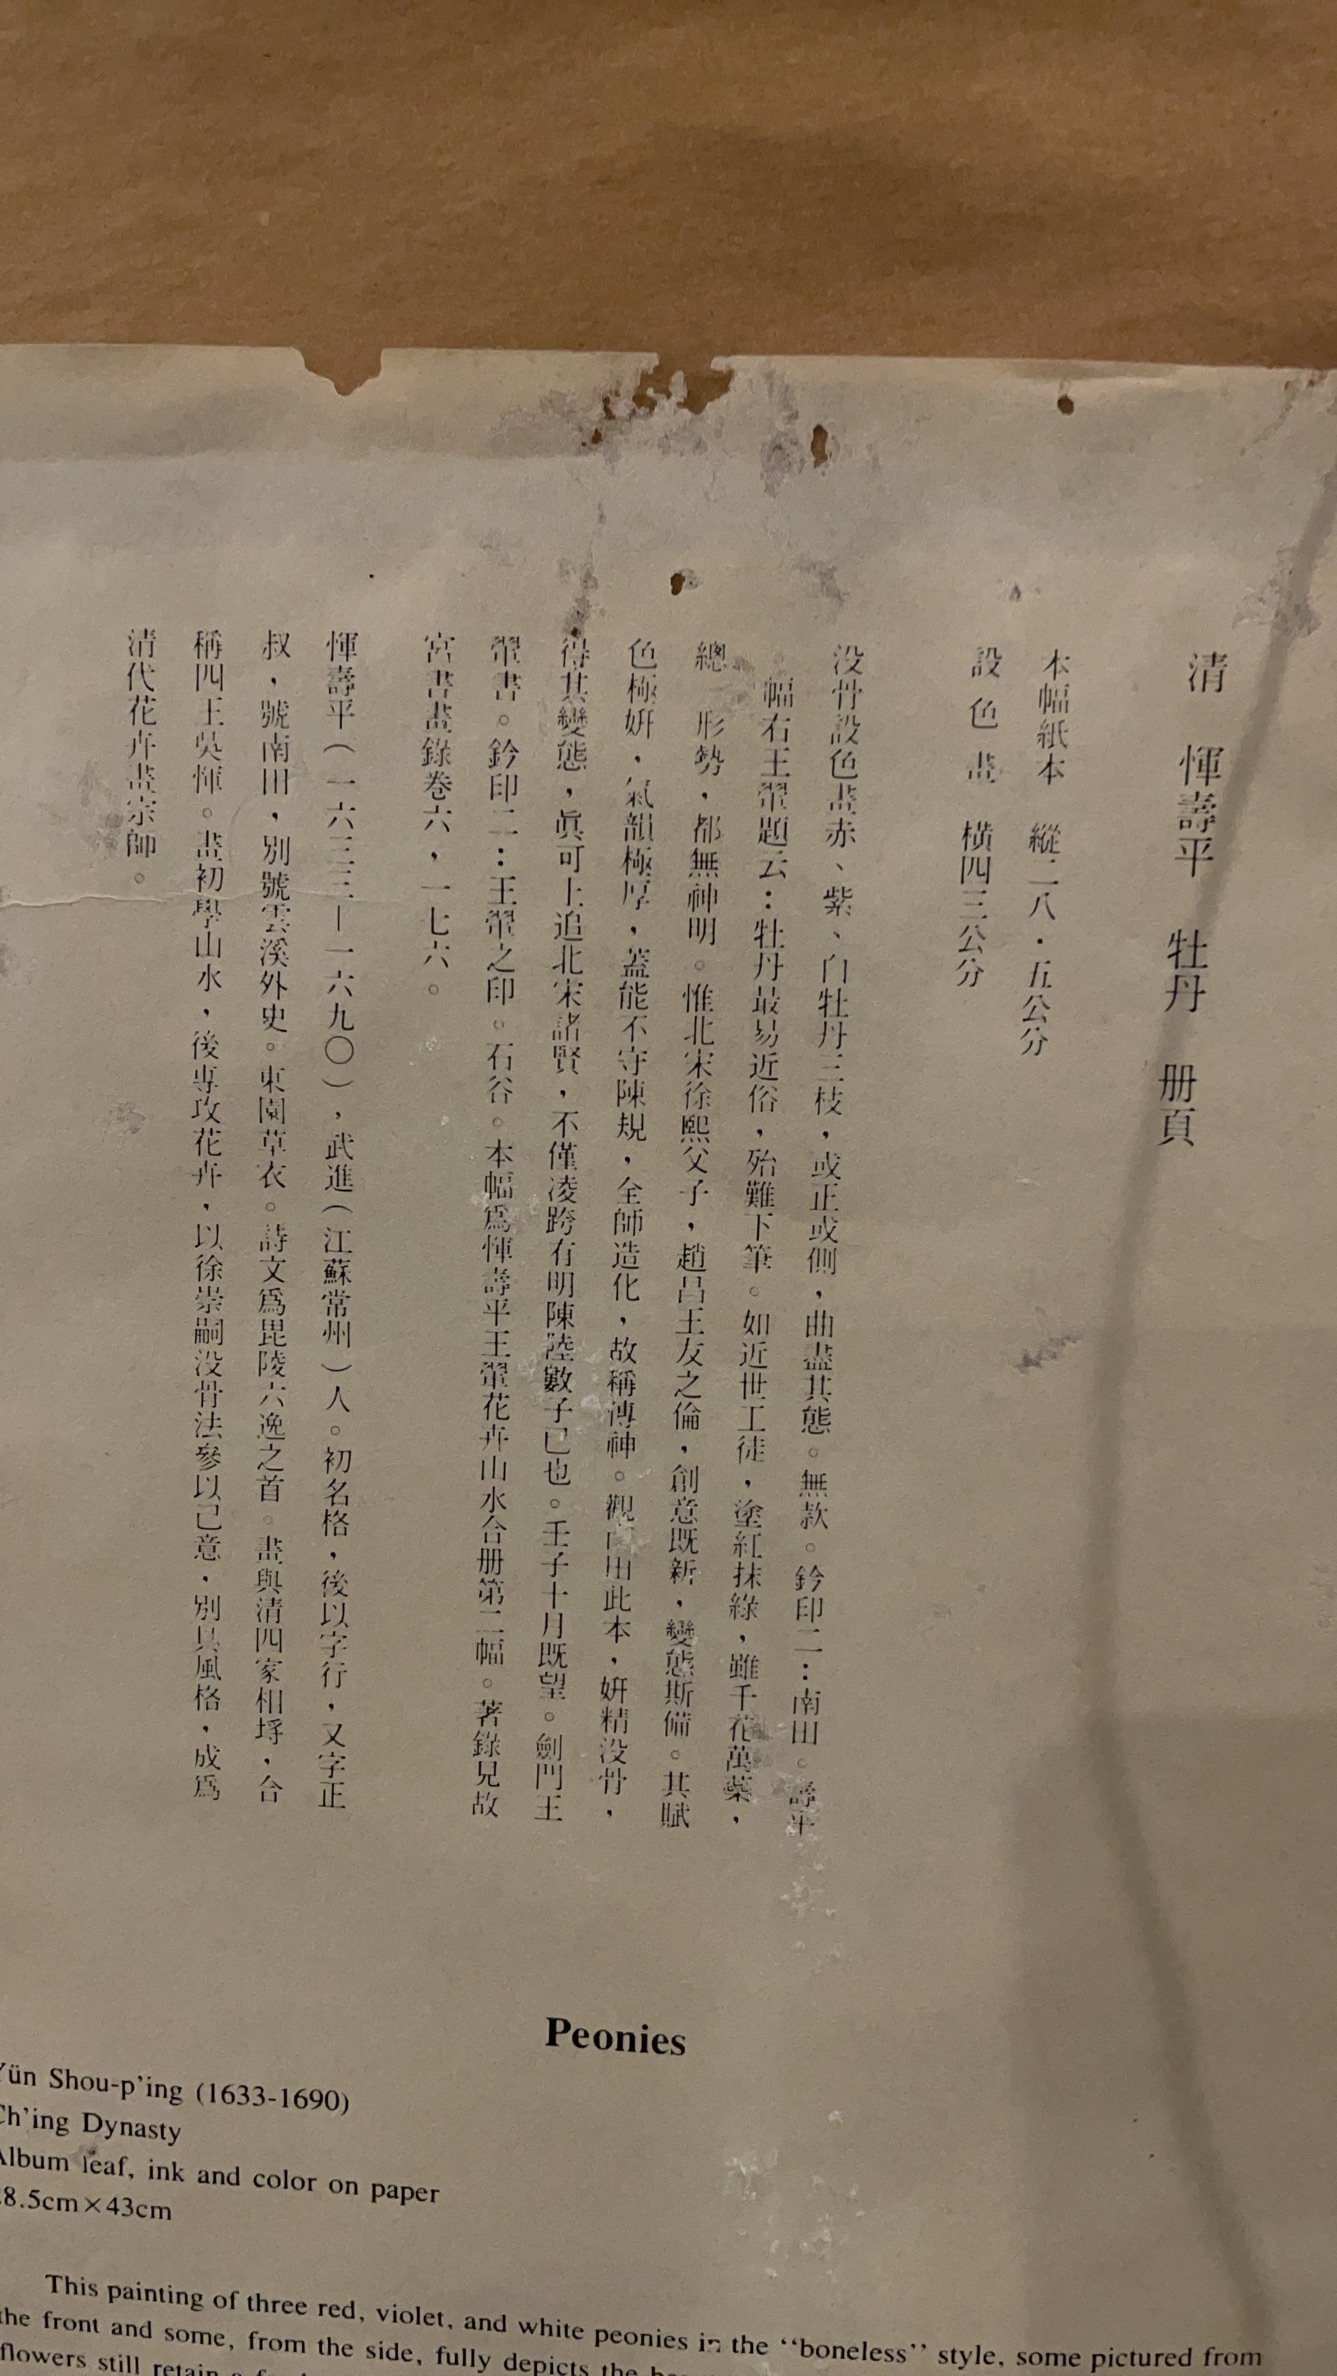 清 惲壽平 牡丹 册頁
本幅紙本 縱二八．五公分
設色畫 橫四三公分
没骨設色畫赤、紫、白牡丹三枝，或正或側，曲盡其態。無款。鈐印二：南田。壽平
。幅右王翬題云：牡丹最易近俗，殆難下筆。如近世工徒，塗紅抹綠，雖千花萬葉，
總一形勢，都無神明。惟北宋徐熙父子，趙昌王友之倫，創意既新，變態斯備。其賦
色極姸，氣韻極厚，蓋能不守陳規，全師造化，故稱傳神。觀田此本，姸精没骨，
得其變態，眞可上追北宋諸賢，不僅凌跨有明陳陸數子已也。壬子十月既望。劍門王
翬書。鈐印二：王翬之印。石谷。本幅爲惲壽平王翬花卉山水合册第二幅。著錄見故
宮書畫錄卷六，一七六。
惲壽平（一六三三—一六九〇），武進（江蘇常州）人。初名格，後以字行，又字正
叔，號南田，別號雲溪外史。東園草衣。詩文爲毘陵六逸之首。畫與清四家相埒，合
稱四王吳惲。畫初學山水，後專攻花卉，以徐崇嗣没骨法參以己意，別具風格，成爲
清代花卉畫宗師。
Peonies
Yün Shou-p'ing (1633-1690)
Ch'ing Dynasty
Album leaf, ink and color on paper
8.5cm×43cm
This painting of three red, violet, and white peonies in the "boneless" style, some pictured from
the front and some, from the side, fully depicts the
flowers still retain a